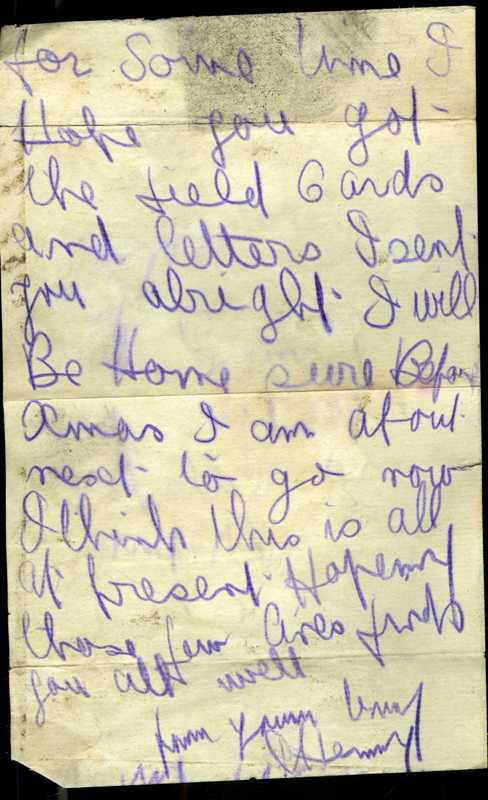 for Some time I
Hope you got
the field Cards
and letters I sent
you alright I will
Be Home sure Before
Xmas I am about
next to go now
I think this is all
At present Hopeing
those few lines finds
you all well
from your
Henry